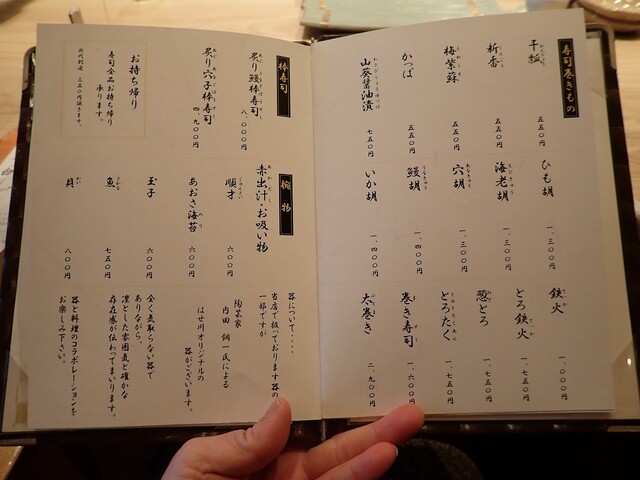 寿司巻きもの
干瓢
五五〇円
新香
五五〇円
梅紫蘇
五五〇円
かっぱ
五五〇円
山葵醤油漬
七五〇円
ひも胡
一、三〇〇円
海老胡
一、三〇〇円
穴胡
一、三〇〇円
鰻胡
一、四〇〇円
いか胡
一、四〇〇円
鉄火
一、〇〇〇円
とろ鉄火
一、七五〇円
葱とろ
一、七五〇円
とろたく
一、七五〇円
巻き寿司
一、六〇〇円
太巻き
二、九〇〇円
棒寿司
炙り鰻棒寿司
八、〇〇〇円
炙り穴子棒寿司
四、九〇〇円
お持ち帰り
寿司全品お持ち帰り
承ります。
折代別途 三五〇円頂きます。
椀物
赤出汁・お吸い物
順才
六〇〇円
あおさ海苔
六〇〇円
玉子
六〇〇円
魚
七五〇円
貝
八〇〇円
器について・・・・
当店で扱っております器の
一部ですが
陶芸家
内田 鋼一氏による
はせ川オリジナルの
器がございます。
全く気取らない器で
ありながら、
凛とした雰囲気と確かな
存在感が伝わってまいります。
器と料理のコラボレーションを
お楽しみ下さい。